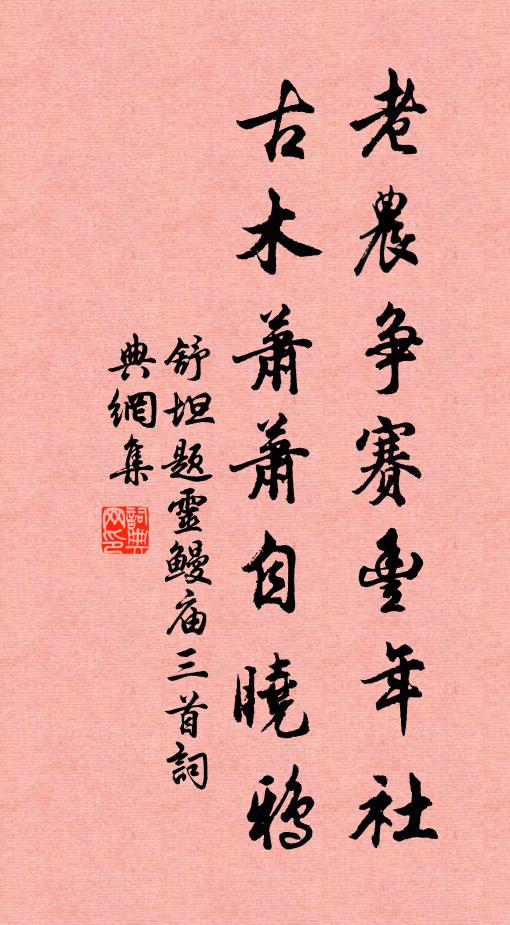 老農争賽豊年社
古木蕭蕭自曉鴉
舒坦題靈鰻庙三首詞
典網集
詞典网印